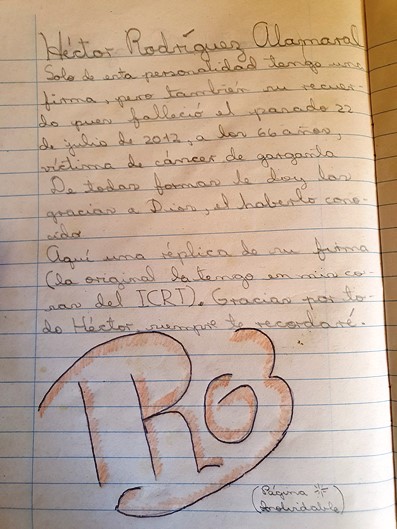 Héctor Rodríguez Alamaral
Solo de esta personalidad tengo una
firma, pero también su recuer-
do pues falleció el pasado 22
de julio de 2012, a los 66 años,
víctima de cáncer de garganta
De todas formas le doy las
gracias a Dios, el haberlo cono-
cido
Aquí una réplica de su firma
(la original la tengo en mis co-
sas del ICRT). Gracias por to-
do Héctor, siempre te recordaré.
(Página
Inolvidable)